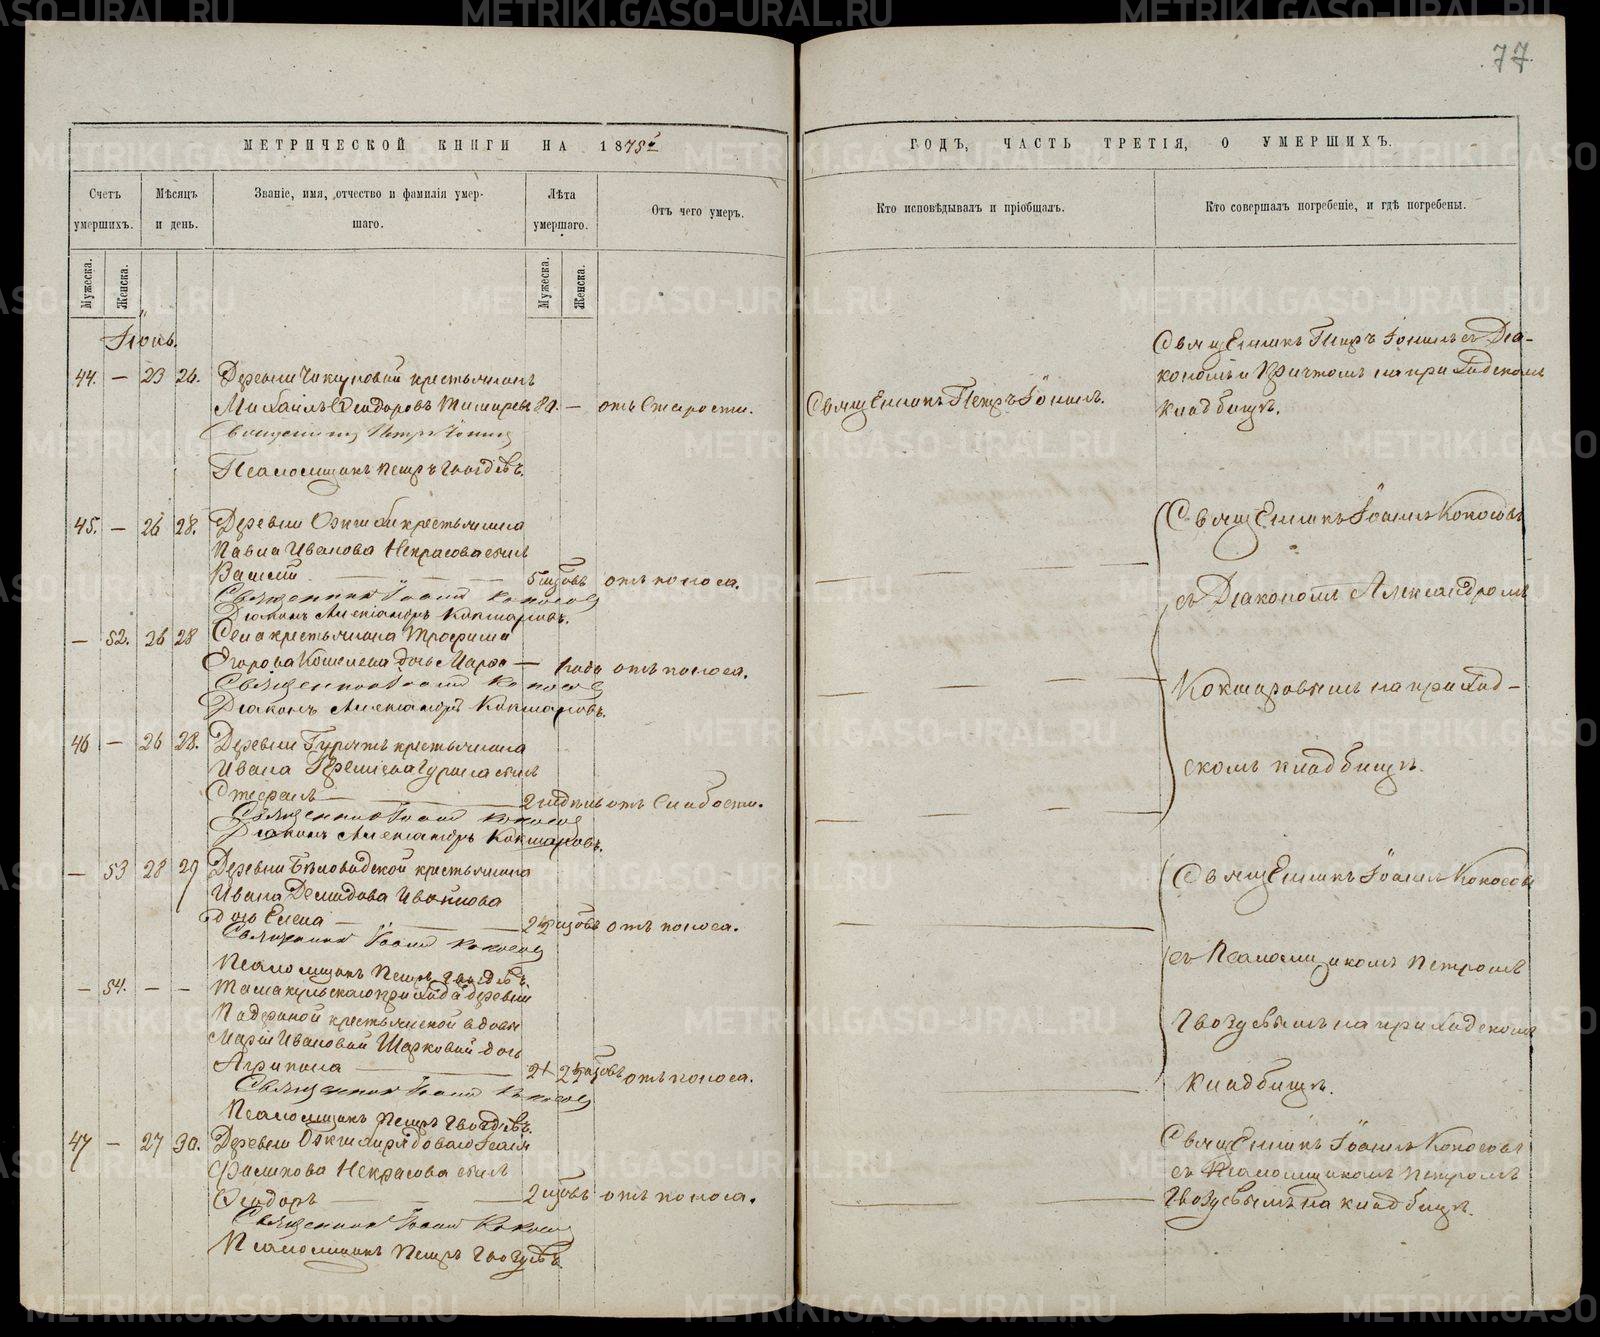 77.
МЕТРИЧЕСКОЙ КНИГИ НА 1875й
ГОДЪ, ЧАСТЬ ТРЕТІЯ, О УМЕРШИХЪ.
Счетъ умершихъ.
Мѣсяцъ и день.
Званіе, имя, отчество и фамилія умершаго.
Лѣта умершаго.
Отъ чего умеръ.
Кто исповѣдывалъ и пріобщалъ.
Кто совершалъ погребеніе, и гдѣ погребены.
Мужеска.
Женска.
Мужеска.
Женска.
Іюнь.
44. — 23 26. Деревни крестьянинъ
Михаилъ Ѳедоровъ 80. — отъ Старости.
Священникъ Петръ
Псаломщикъ Петръ Гвоздевъ.
Священникъ Петръ
Священникъ Петръ съ Діа-
кономъ и Причтомъ на приходскомъ
кладбищѣ.
45. — 26 28. Деревни крестьянина
Павла Иванова Некрасова сынъ
Василій — 5 отъ поноса.
Священникъ Іоаннъ Кокосов
Діаконъ Александръ Кокшаровъ.
— 52. 26 28 Села крестьянина Трофима
Егорова Кошелева дочь Марѳа — 1 года отъ поноса.
Священникъ Іоаннъ Кокосов
Діаконъ Александръ Кокшаровъ.
46 — 26 28. Деревни крестьянина
Ивана сынъ
Стефанъ — 2 недѣль отъ Слабости.
Священникъ Іоаннъ Кокосов
Діаконъ Александръ Кокшаровъ.
Священникъ Іоаннъ Кокосовъ
съ Діакономъ Александромъ
Кокшаровымъ на приход-
скомъ кладбищѣ.
— 53 28 29 Деревни крестьянина
Ивана Демидова
дочь Елена — отъ поноса.
Священникъ Іоаннъ Кокосов
Псаломщикъ Петръ Гвоздевъ.
— 54. — — прихода деревни
крестьянской вдовы
Маріи Ивановой дочь
Агрипина — отъ поноса.
Священникъ Іоаннъ Кокосов
Псаломщикъ Петръ Гвоздевъ.
Священникъ Іоаннъ Кокосовъ
съ Псаломщикомъ Петромъ
Гвоздевымъ на приходскомъ
кладбищѣ.
47 — 27 30. Деревни рядоваго
Филипова Некрасова сынъ
Ѳедоръ — 2 отъ поноса.
Священникъ Іоаннъ Кокосов
Псаломщикъ Петръ Гвоздевъ
Священникъ Іоаннъ Кокосовъ
съ Псаломщикомъ Петромъ
Гвоздевымъ на кладбищѣ.
METRIKI.GASO-URAL.RU